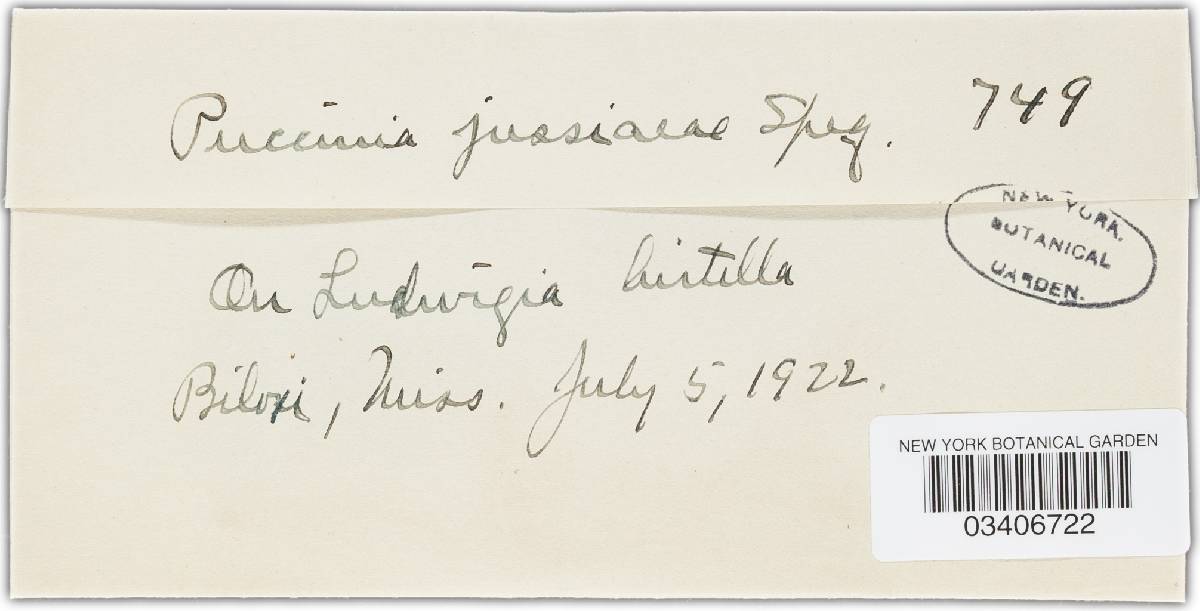 Puccinia jussiaeae Speg. 749
On Ludwigia hirtella
Biloxi, Miss. July 5, 1922.
NEW YORK.
BOTANICAL
GARDEN.
NEW YORK BOTANICAL GARDEN
03406722